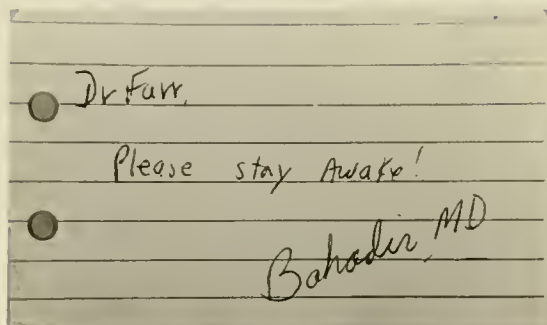 Dr. Farr,
Please stay Awake!
Bahadir, MD